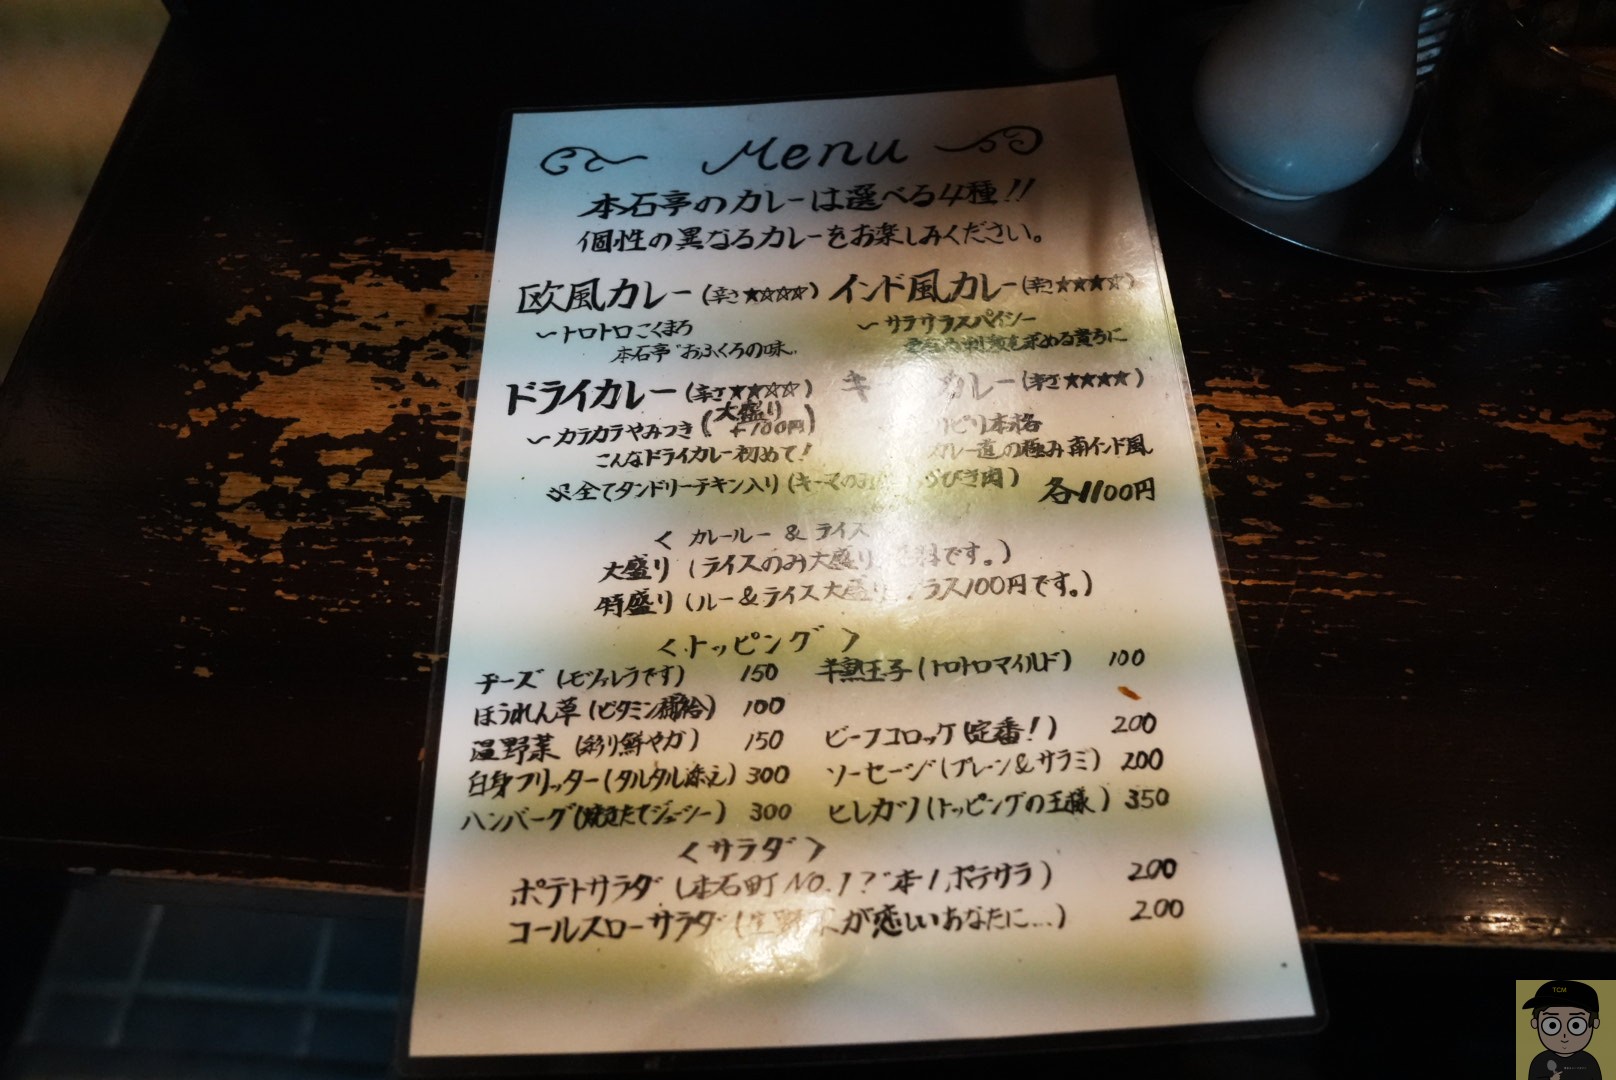 Menu
本石亭のカレーは選べる4種!!
個性の異なるカレーをお楽しみください。
欧風カレー(辛さ★☆☆☆)
〜トロトロこくまろ
本石亭"おふくろの味"
インド風カレー(辛さ★★★☆)
〜サラサラスパイシー
刺激を求める貴方に
ドライカレー(辛さ★★☆☆)
〜カラカラやみつき(大盛り+100円)
こんなドライカレー初めて!
キ カレー(辛さ★★★★)
リピリ本格
カレー道の極み南インド風
※全てタンドリーチキン入り(キーマのみ びき肉)
各1100円
< カレールー & ライス
大盛り (ライスのみ大盛り です。)
特盛り (ルー&ライス大盛り プラス100円です。)
<トッピング>
チーズ (モッツァレラです) 150
半熟玉子(トロトロマイルド) 100
ほうれん草(ビタミン補給) 100
温野菜 (彩り鮮やか) 150
ビーフコロッケ(定番!) 200
白身フリッター(タルタル添え) 300
ソーセージ(プレーン&サラミ) 200
ハンバーグ(焼きたてジューシー) 300
ヒレカツ(トッピングの王様) 350
<サラダ>
ポテトサラダ (本石町NO.1?"本1"ポテサラ) 200
コールスローサラダ(生野菜が恋しいあなたに…) 200
TCM